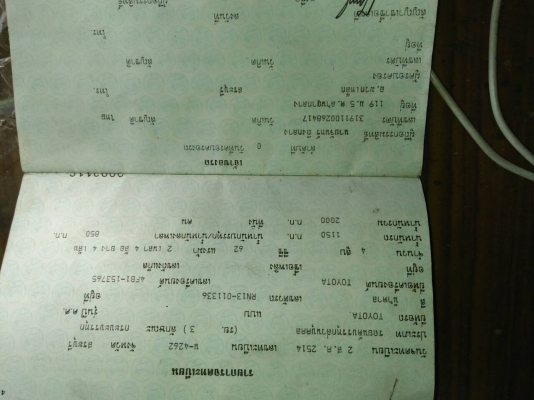 4
รายการจดทะเบียน
วันจดทะเบียน 2 ส.ค. 2514 เลขทะเบียน น-4262 จังหวัด สระบุรี
ประเภท รถยนต์บรรทุกส่วนบุคคล (รย. 3 ) ลักษณะ กระบะบรรทุก
ยี่ห้อรถ TOYOTA แบบ รุ่นปี ค.ศ.
สี น้ำตาล เลขตัวรถ RN13-011336 อยู่ที่
ยี่ห้อเครื่องยนต์ TOYOTA เลขเครื่องยนต์ 4FB1-153765
อยู่ที่ เชื้อเพลิง เลขถังแก๊ส
จำนวน 4 สูบ ซีซี 62 แรงม้า 2 เพลา 4 ล้อ ยาง 4 เส้น
น้ำหนักรถ 1150 ก.ก. น้ำหนักบรรทุก/น้ำหนักลงเพลา 850 ก.ก.
น้ำหนักรวม 2000 ก.ก. ที่นั่ง คน
เจ้าของรถ
ลำดับที่ 0 วันที่ครอบครองรถ
ผู้ถือกรรมสิทธิ์
เลขที่บัตร 3191100268417 วันเกิด สัญชาติ ไทย
ที่อยู่ 119 ม.5 ต.
อ.มวกเหล็ก สระบุรี โทร.
ผู้ครอบครอง
เลขที่บัตร วันเกิด สัญชาติ
ที่อยู่ โทร.
สัญญาเช่าซื้อเลขที่ ลงวันที่ ผู้ถือกรรมสิทธิ์